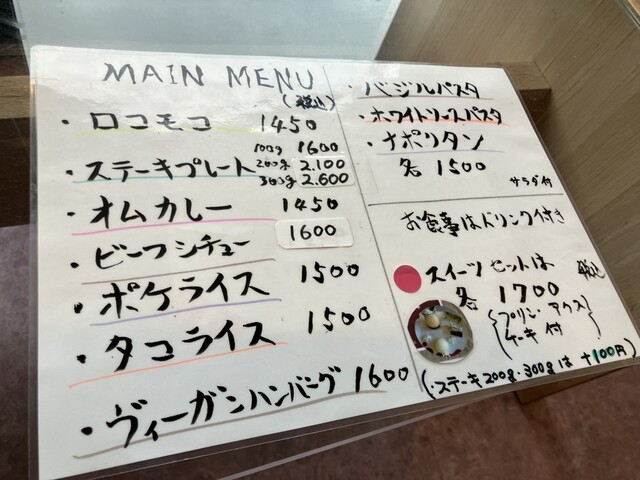 MAIN MENU
(税込)
・ロコモコ 1450
100g 1600
・ステーキプレート 200g 2.100
300g 2.600
・オムカレー 1450
・ビーフシチュー 1600
・ポケライス 1500
・タコライス 1500
・ヴィーガンハンバーグ 1600
・バジルパスタ
・ホワイトソースパスタ
・ナポリタン
各 1500
サラダ付
お食事はドリンク付き
スイーツセットは 税込
各 1700
{プリン・アイス
ケーキ付}
(・ステーキ200g・300gは +100円)